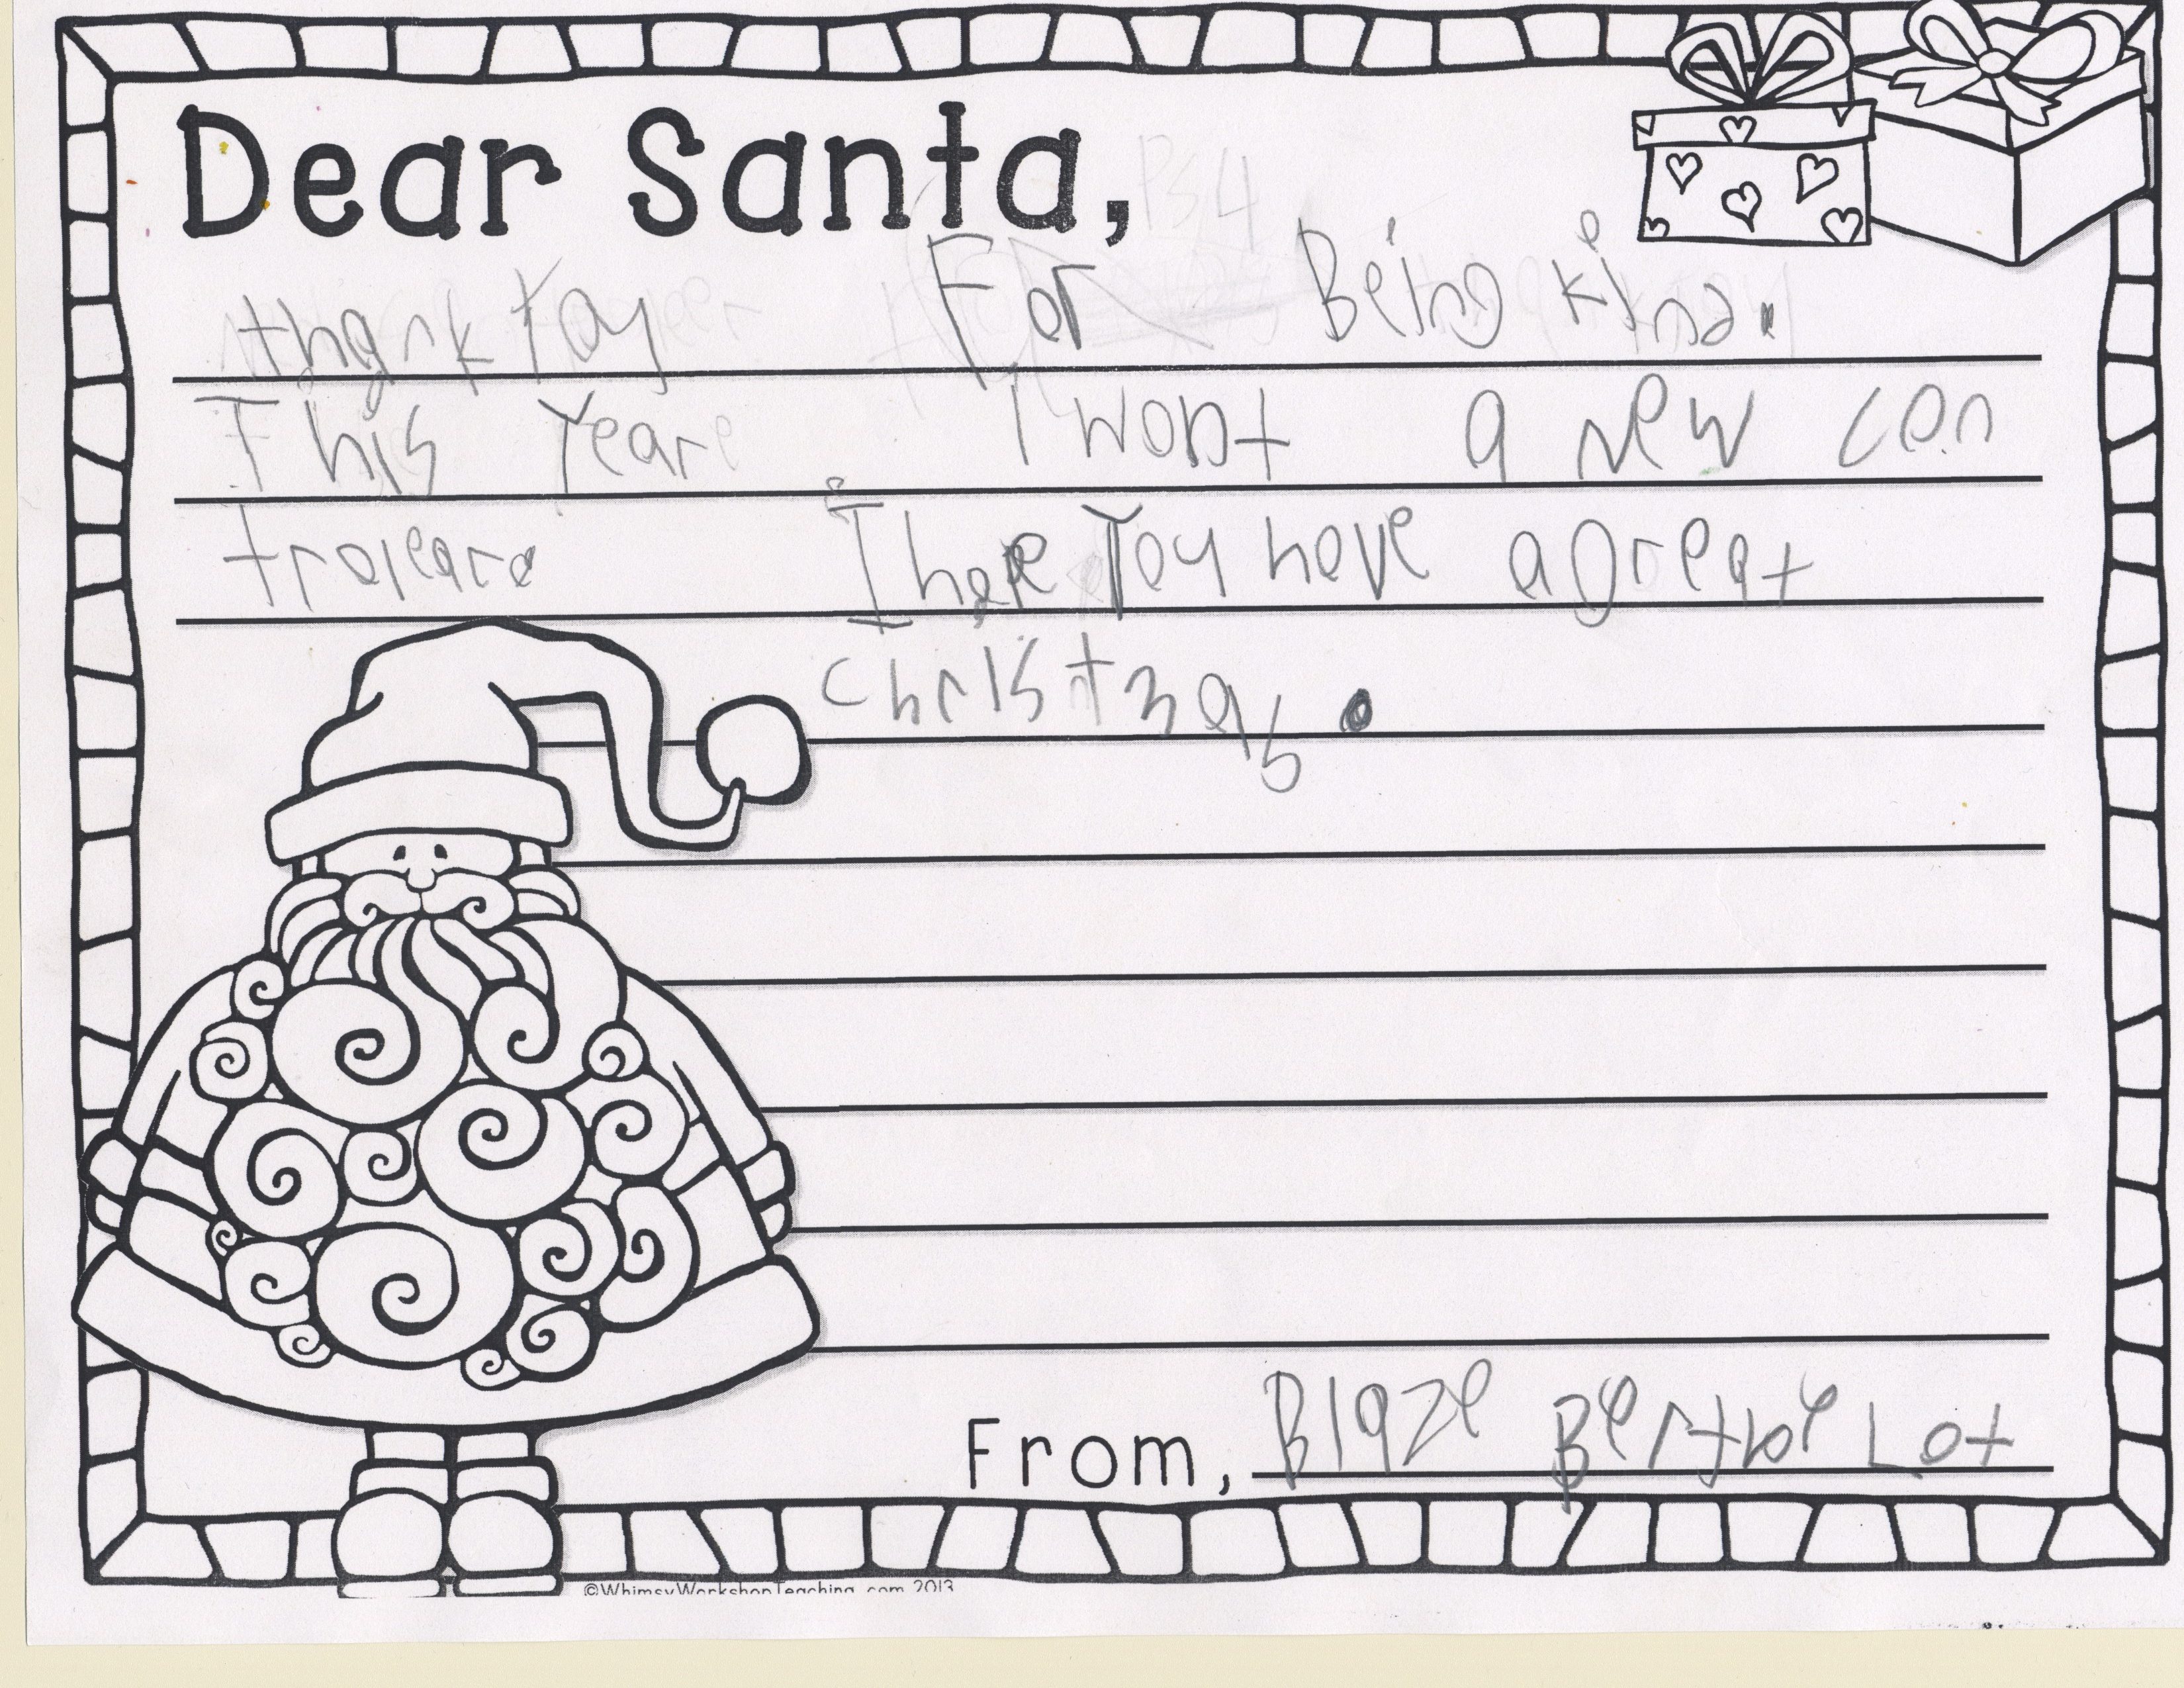 Dear Santa,
PS4
thank you For Being kind.
This year I wont a new con
troleare I hope you have a great
christmas.
From, Blaze Berthe Lot
©WhimsyWorkshopTeaching.com 2013